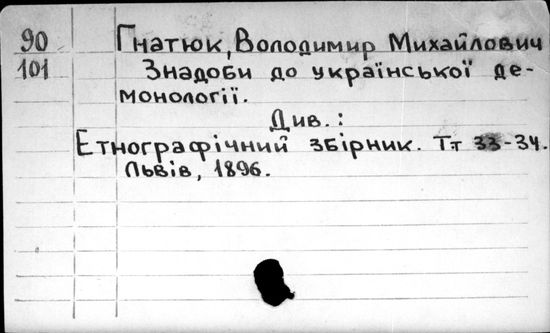 90 Гнатюк, Володимир Михайлович
101 Знадоби до української де-
монології.
Див.:
Етнографічний збірник. Тт 33-34.
Львів, 1896.